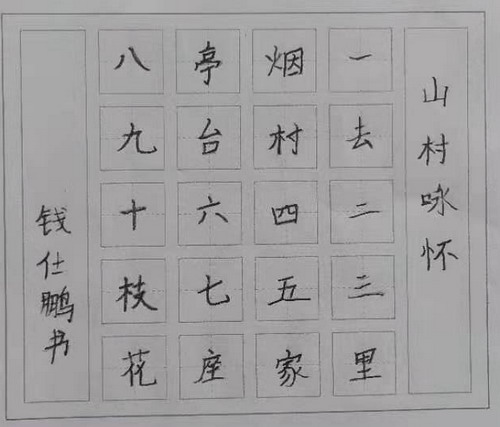 山村咏怀
一去二三里
烟村四五家
亭台六七座
八九十枝花
钱仕鹏书